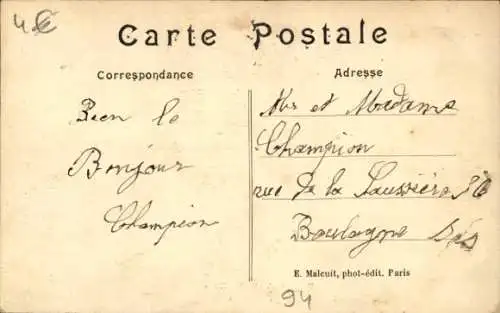 4€
Carte Postale
Correspondance
Adresse
Bien le
Bonjour
Champion
Mr et Madame
Champion
rue de la Saussière 36
Boulogne
E. Malcuit, phot-édit. Paris
94